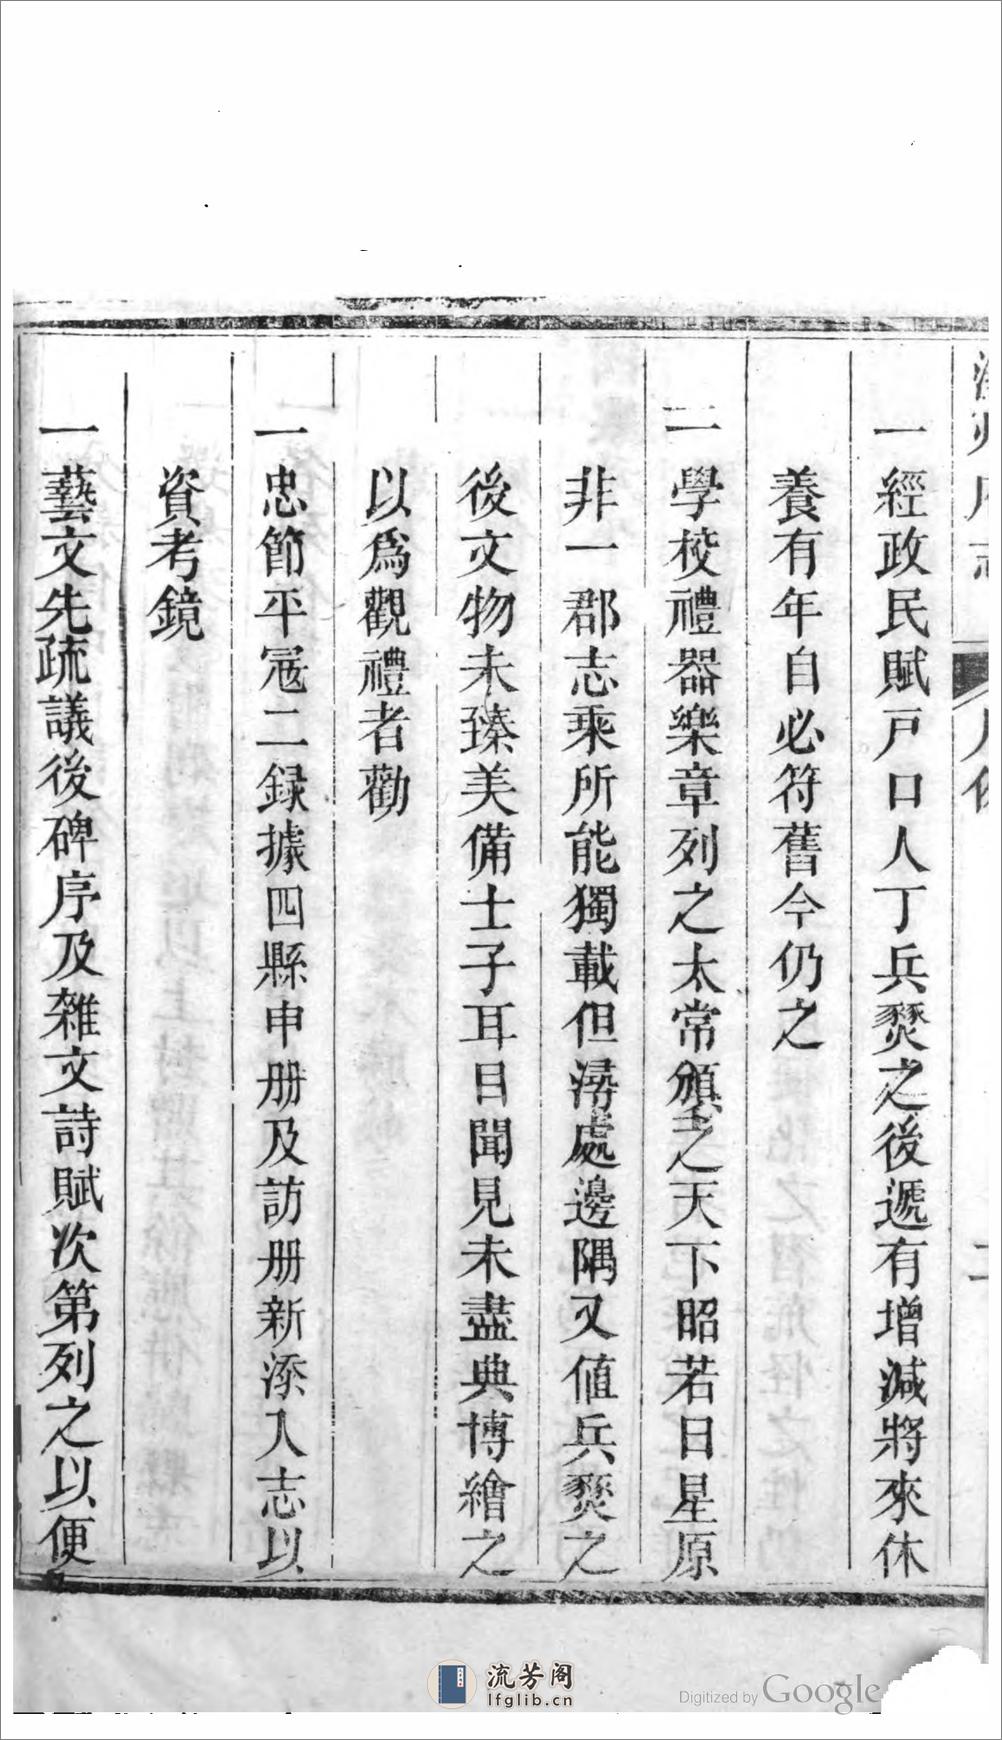 一經政民賦戸口人丁兵燹之後遞有增減將來休
養有年自必符舊今仍之
一學校禮器樂章列之太常頒之天下昭若日星原
非一郡志乘所能獨載但潯處邊隅又值兵燹之
後文物未臻美備士子耳目聞見未盡典博繪之
以爲觀禮者勸
一忠節平冦二録據四縣申册及訪册新添入志以
資考鏡
一藝文先疏議後碑序及雜文詩賦次第列之以便
流芳阁
lfglib.cn
Digitized by Google